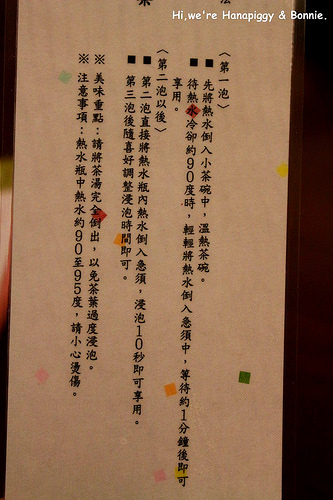 Hi,we're Hanapiggy & Bonnie.
法
〈第一泡〉
■ 先將熱水倒入小茶碗中，溫熱茶碗。
■ 待熱水冷卻約90度時，輕輕將熱水倒入急須中，等待約1分鐘後即可
享用。
〈第二泡以後〉
■ 第二泡直接將熱水瓶內熱水倒入急須，浸泡10秒即可享用。
■ 第三泡後隨喜好調整浸泡時間即可。
※ 美味重點：請將茶湯完全倒出，以免茶葉過度浸泡。
※ 注意事項：熱水瓶中熱水約90至95度，請小心燙傷。